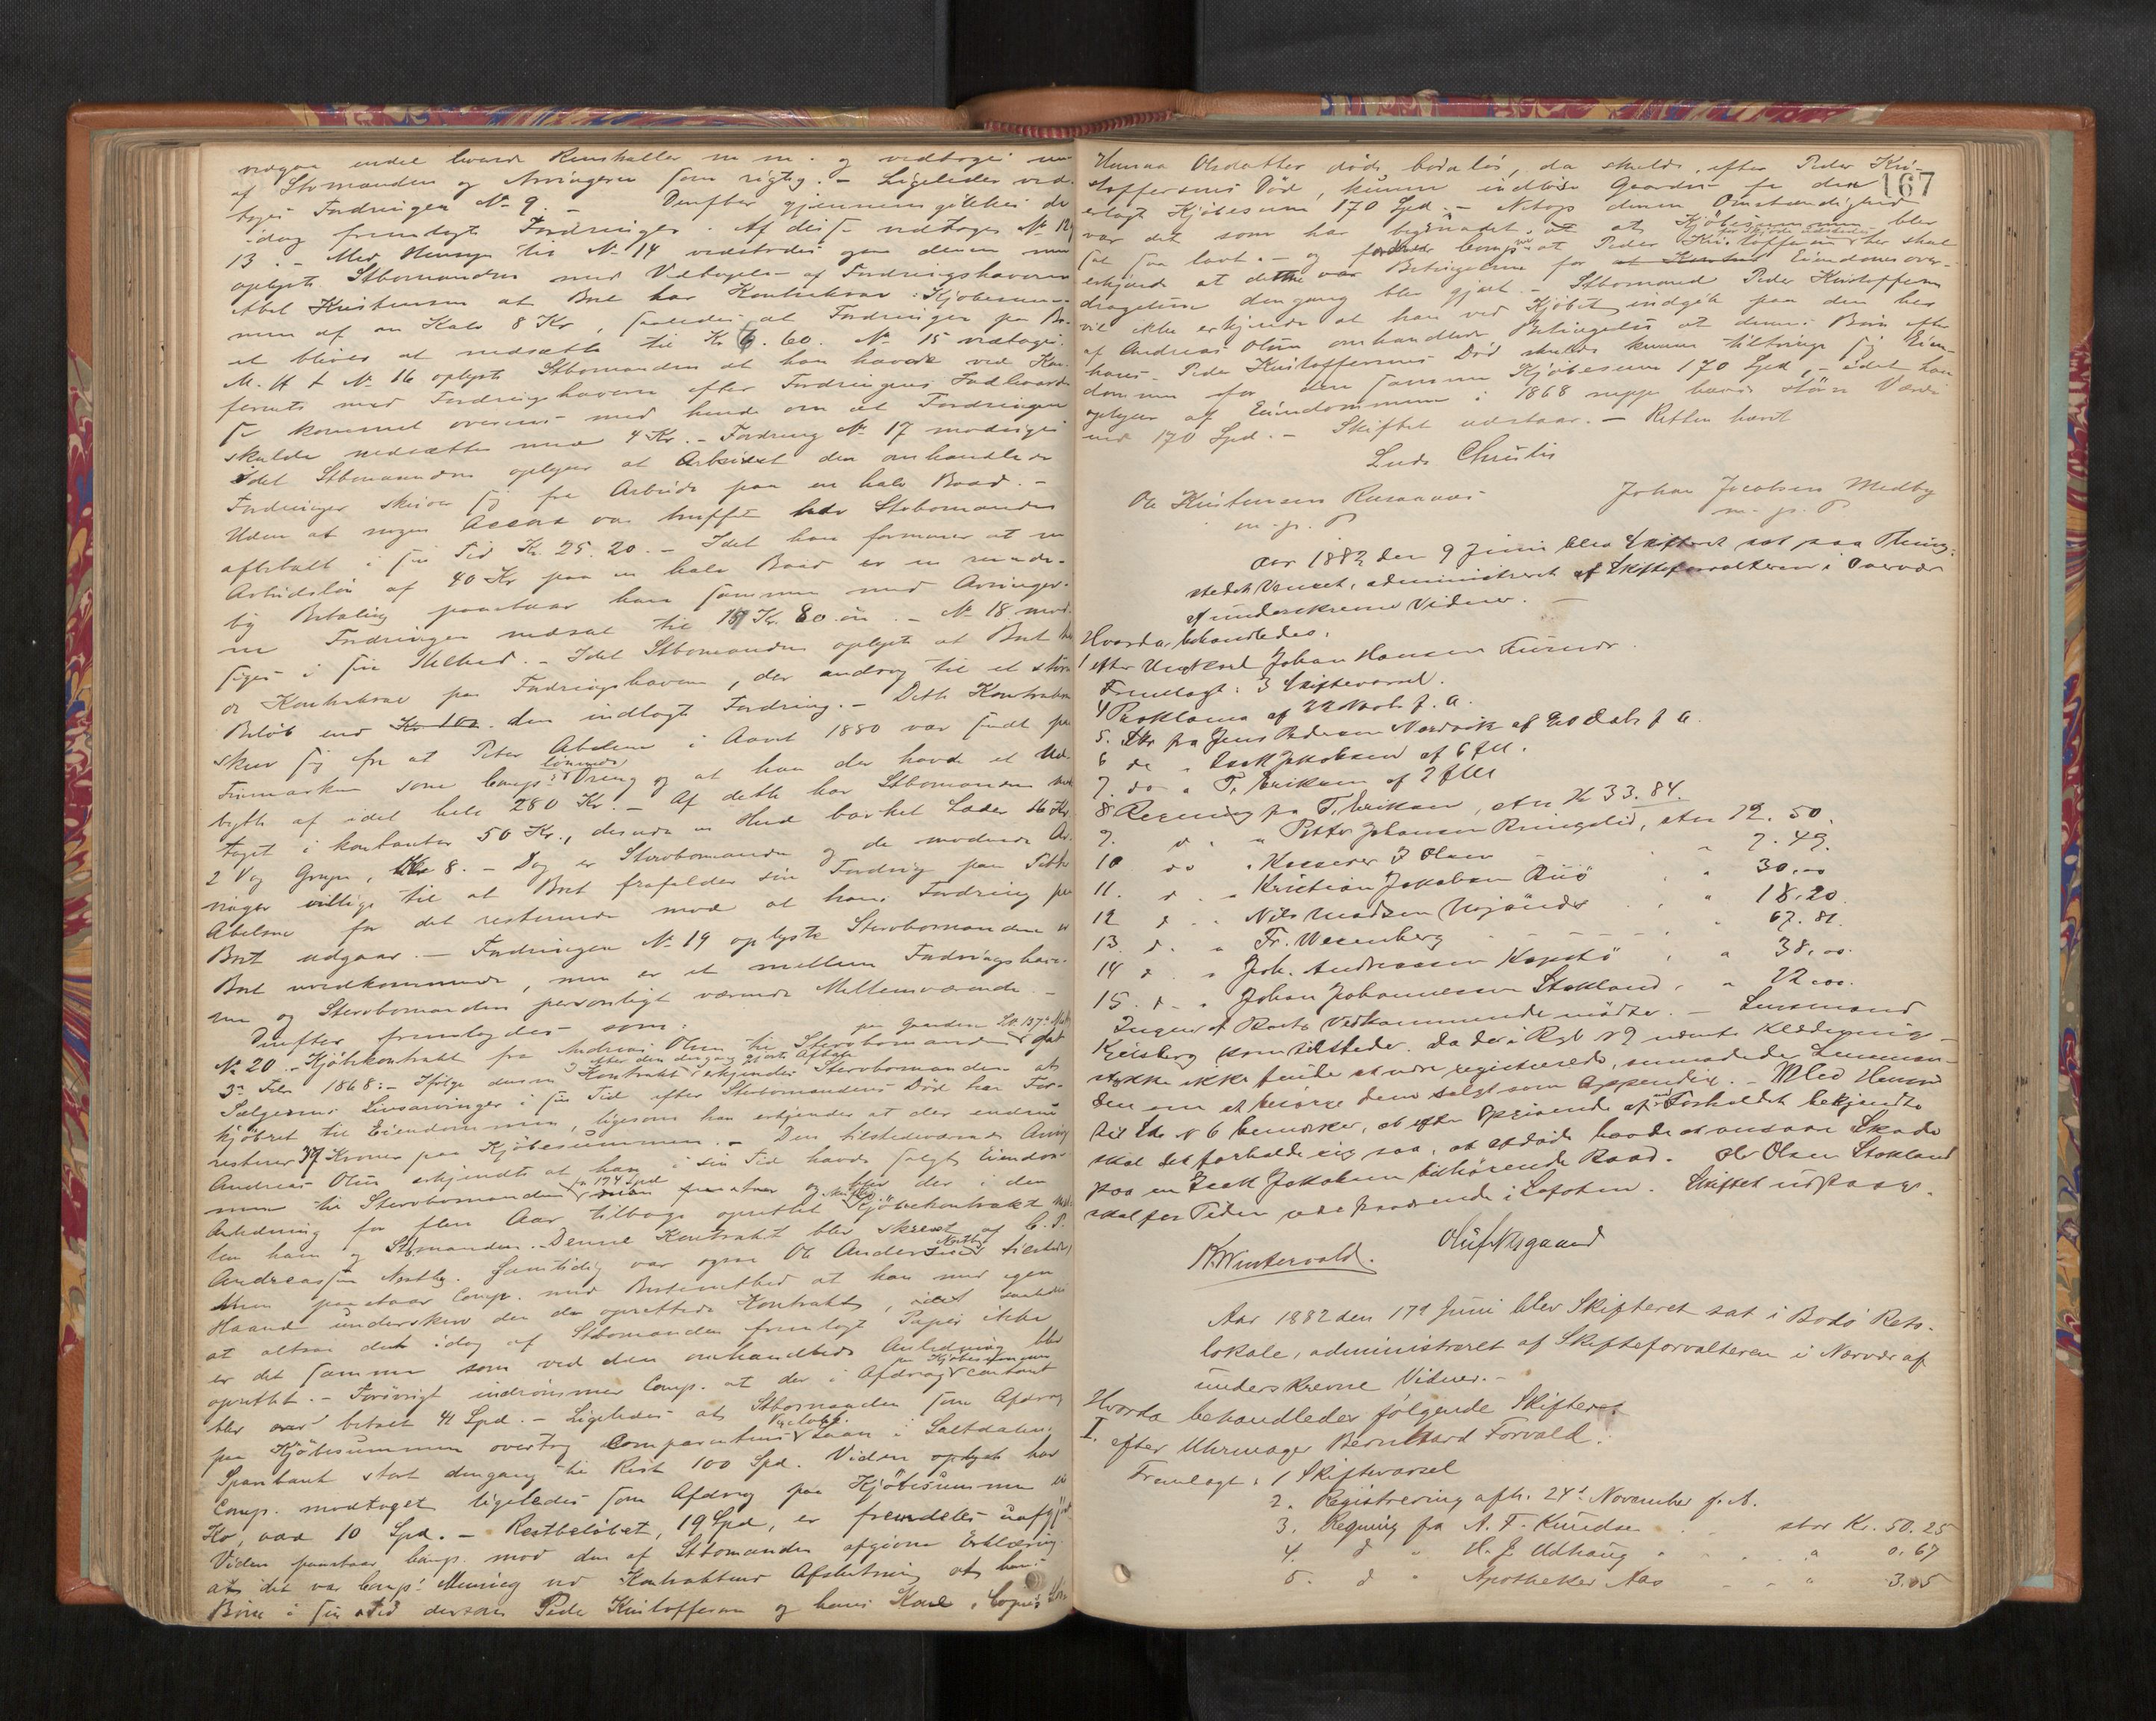 endel m. m. og vedtoges
af Stbomanden og Arvingerne som rigtig. - Ligeledes ved-
toges Fordringen No 9. - Derefter gjennemgikkes de
idag fremlagte Fordringer. Af disse vedtoges No 12,
13. - Med Hensyn til No 14
oplyste Stbomanden med Vedtagelse af Fordringshaveren
Abel Kristensen at Boet har Kontrakrav: Kjøbesum-
men af en Kalv 8 Kr, saaledes at Fordringen paa Bo-
et bliver at nedsætte til Kr 6.60. No 15 vedtoges.
M. H. t. No 16 oplyste Stbomanden at han havde ved Kon-
ferents med Fordringshaveren efter Fordringens Indlevering
kommet overens med hende om at Fordringen
skulde nedsættes med 4 Kr. - Fordring No 17 modsiges
idet Stbomanden oplyser at Arbeidet den omhandlede
Fordringer skriver sig fra Arbeide paa en halv Baad. -
Uden at nogen Accord var truffet har Stbomanden
afbetalt i sin Tid Kr. 25.20. - Idet han formener at en
Arbeidsløn af 40 Kr paa en halv Baad er en
lig Betaling paastaar han sammen med Arvinger-
ne Fordringen nedsat til Kr. 80 øre. - No 18 mod-
siges i sin Helhed. - Idet Stbomanden oplyste at Boet har
et Kontrakrav paa Fordringshaveren, der androg til et større
Beløb end den indlagte Fordring. - Dette Kontrakrav
skrev sig fra at Peter Abelsen i Aaret 1880 var sendt paa
Finmarken som Comp: lønnede Dreng og at han der havde et Ud-
bytte af idet hele 280 Kr. - Af dette har Stbomanden
taget i kontanter 50 Kr., desuden en Hud barket Læder 16 Kr,
2 Vog Gryn, Kr 8. - Dog er Stervbomanden og de mødende Ar-
vinger villige til at Boet frafalder sin Fordring paa Petter
Abelsen for det resterende mod at hans Fordring paa
Boet udgaar. - Fordringen No 19 oplyste Stervbomanden er
Boet uvedkommende, men er et mellem Fordringshave-
ren og Stervbomanden personligt værende Mellemværende. -
Derefter fremlagdes som:
paa Gaarden
No 20. - Kjøbekontrakt fra Andreas Olsen til Stervbomanden dat
efter den dengang gjorte Aftale
3die Febr 1868: - Ifølge denne Kontrakt erkjender Stervbomanden at
Sælgerens Livsarvinger i sin Tid efter Stervbomandens Død har For-
kjøbret til Eiendommen, ligesom han erkjender at der endnu
resterer Kroner paa Kjøbesummen. - Den tilstedeværende Arving
Andreas Olsen erkjendte at han i sin Tid havde solgt Eiendom-
for 174 Spd
men til Stervbomanden og blev der i den
Anledning for flere Aar tilbage oprettet skriftlig Kjøbekontrakt mel-
lem ham og Stbomanden. Denne Kontrakt blev skrevet af C. P.
Andreassen Nestby. Samtidig var ogsaa Ole Andersen Nestby tilstede
paastaar Comp. med Bestemthed at han med egen
Haand underskrev den da oprettede Kontrakt,
at altsaa det idag af Stbomanden fremlagte Papir ikke
er det samme som ved den omhandlede Anledning blev
oprettet. - Forøvrigt indrømmer Comp. at der i Afdrag paa Kjøbesummen contant
blev betalt 41 Spd. - Ligeledes at Stbomanden som Afdrag
paa Kjøbesummen overtog Comparentens Laan i Saltdalens
Sparebank stort dengang til Rest 100 Spd. Videre oplyst har
Comp. modtaget ligeledes som Afdrag paa Kjøbesummen en
Ko, vær 10 Spd. - Restbeløbet, 19 Spd, er fremdeles uafgjort
Videre paastaar Comp. mod den af Stbomanden afgivne Erklæring
at det var Comp: Mening ved Kontraktens Afslutning at hans
Børn i sin Tid dersom Peder Kristoffersen og hans Kone,
167
Olsdatter døde barnløs, da skulde, efter Peder Kri-
stoffersens Død, kunne indløse Gaarden for den
erlagte Kjøbesum 170 Spd. - Netop denne Omstændighed
var det som har begrundet, at Kjøbesummen blev
sat saa lavt. - og Comp: at Peder Kristoffersen her skal
erkjende at dette var Betingelserne for Eiendomsover-
dragelsen dengang blev gjort. - Stbomand Peder Kristoffersen
vil ikke erkjende at han ved Kjøbet indgik paa den her
af Andreas Olsen omhandlede Betingelse at dennes Børn efter
hans - Peder Kristoffersens Død skulde kunne tiltvinge sig Eien-
dommen for den samme Kjøbesum 170 Spd, - idet han
oplyser at Eiendommen i 1868 neppe havde større Værdi
end 170 Spd. - Skiftet udstaar. - Retten hævet
Ludv Christie
Ole Kristensen Rusaanes Johan Jacobsen Medby
m. p. P m. p. P
Aar 1882 den 9 Juni blev Skifteret sat paa Thing-
stedet Venset, administreret af Skifteforvalteren i Overvær
af underskrevne Vidner. -
Hvorda behandledes:
1 efter Ungkarl Johan Hansen
Fremlagt: 3 Skiftevarsel.
4 Proklama af 22 Novb. f. A.
5. Skr fra Jens Pedersen Nordvik af 20 Decb f A.
6 do " Isak Jakobsen af 6 f M.
7. do " T. Eriksen af 2 f M
8 Regning fra T. Eriksen, stor Kr 33.84.
9. d " Petter Johansen Ringslid, stor 12.50.
10 do " J Olsen " 7.49.
11. d " Kristian Jakobsen " 30,00
12 d " Nils Madsen " 18.20.
13. d. " Fr. Wesenberg " 67.81.
14 d. " Joh. Andreassen Kopstø " 38,00.
15. d. " Johan Johannesen Stokland, " 22,00.
Ingen af Boets Vedkommende mødte. - Lensmand
Kjelsberg kom tilstede. Da de i Regl. No 9 nævnte Klædnings-
stykke ikke fandtes at være registrerede, anmodedes Lensman-
den om at besørge dem solgt som Appendix. - Med Hensyn
til Skr No 6 bemærkes, at efter Opgivende af med Forholdet bekjendte
skal det forholde sig saa, at afdøde havde at ansvare Skade
paa en Isak Jakobsen tilhørende Baad. Ole Olsen Stokland
skal for Tiden være fraværende i Lofoten. Skiftet udstaar.
K. Wintervold. Oluf Algaard
Aar 1882 den 17de Juni blev Skifteret sat i Bodø Rets-
lokale, administreret af Skifteforvalteren i Nærvær af
underskrevne Vidner. -
Hvorda behandledes følgende Skifteret
I. efter Uhrmager Bernhard Forvald.
Fremlagt: 1 Skiftevarsel
2. Registrering afh. 24de November f. A.
3. Regning fra A. F. Knudsen stor Kr. 50.25
4. d " H. J. Udhaug " 0.67
5. d " Apotheker Aas " 3.05